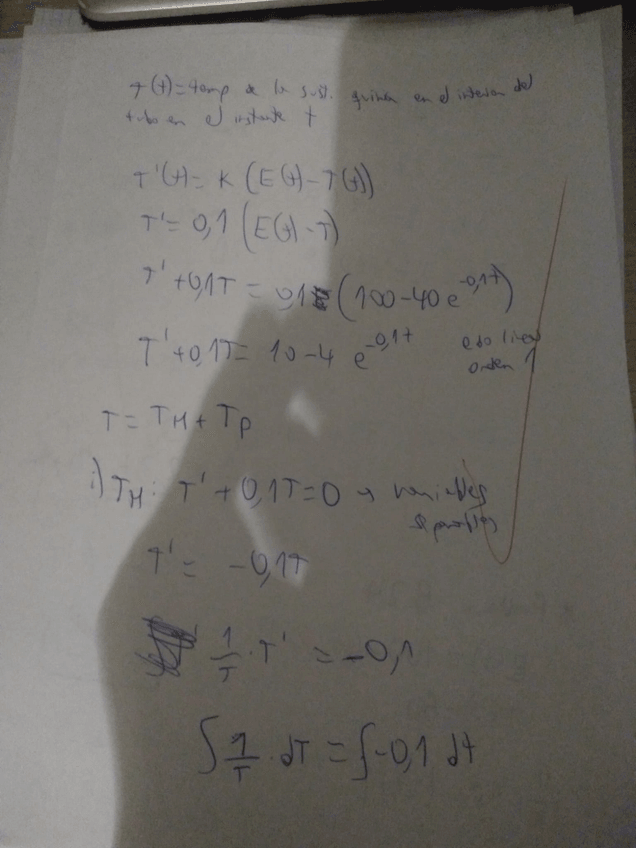 T(t)=temp de la sust. química en el interior del
tubo en el instante t
T'(t)= K (E(t)-T(t))
T'= 0,1 (E(t)-T)
T'+0,1T = 0,1 (100-40 e^-0,1t)
T'+0,1T= 10-4 e^-0,1t edo lineal
orden 1
T= TH + TP
i) TH: T' + 0,1T=0 → variables
separables
T'= -0,1T
1/T · T' = -0,1
∫ 1/T · dT = ∫-0,1 dt